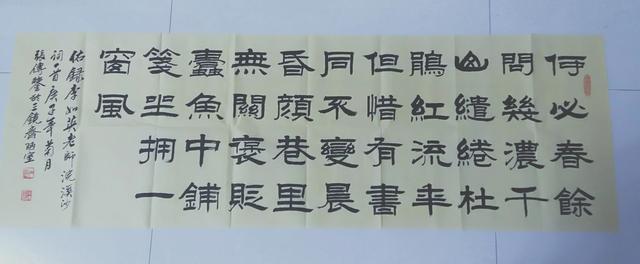 何必春餘
問幾濃千
山繾綣杜
鵑紅流年
但惜有書
同不變晨
昏顏巷里
無關褒貶
蠹魚中鋪
箋坐拥一
窗風
錄李如英老師浣溪沙
詞一首庚子年菊月
張傳於三鏡齋